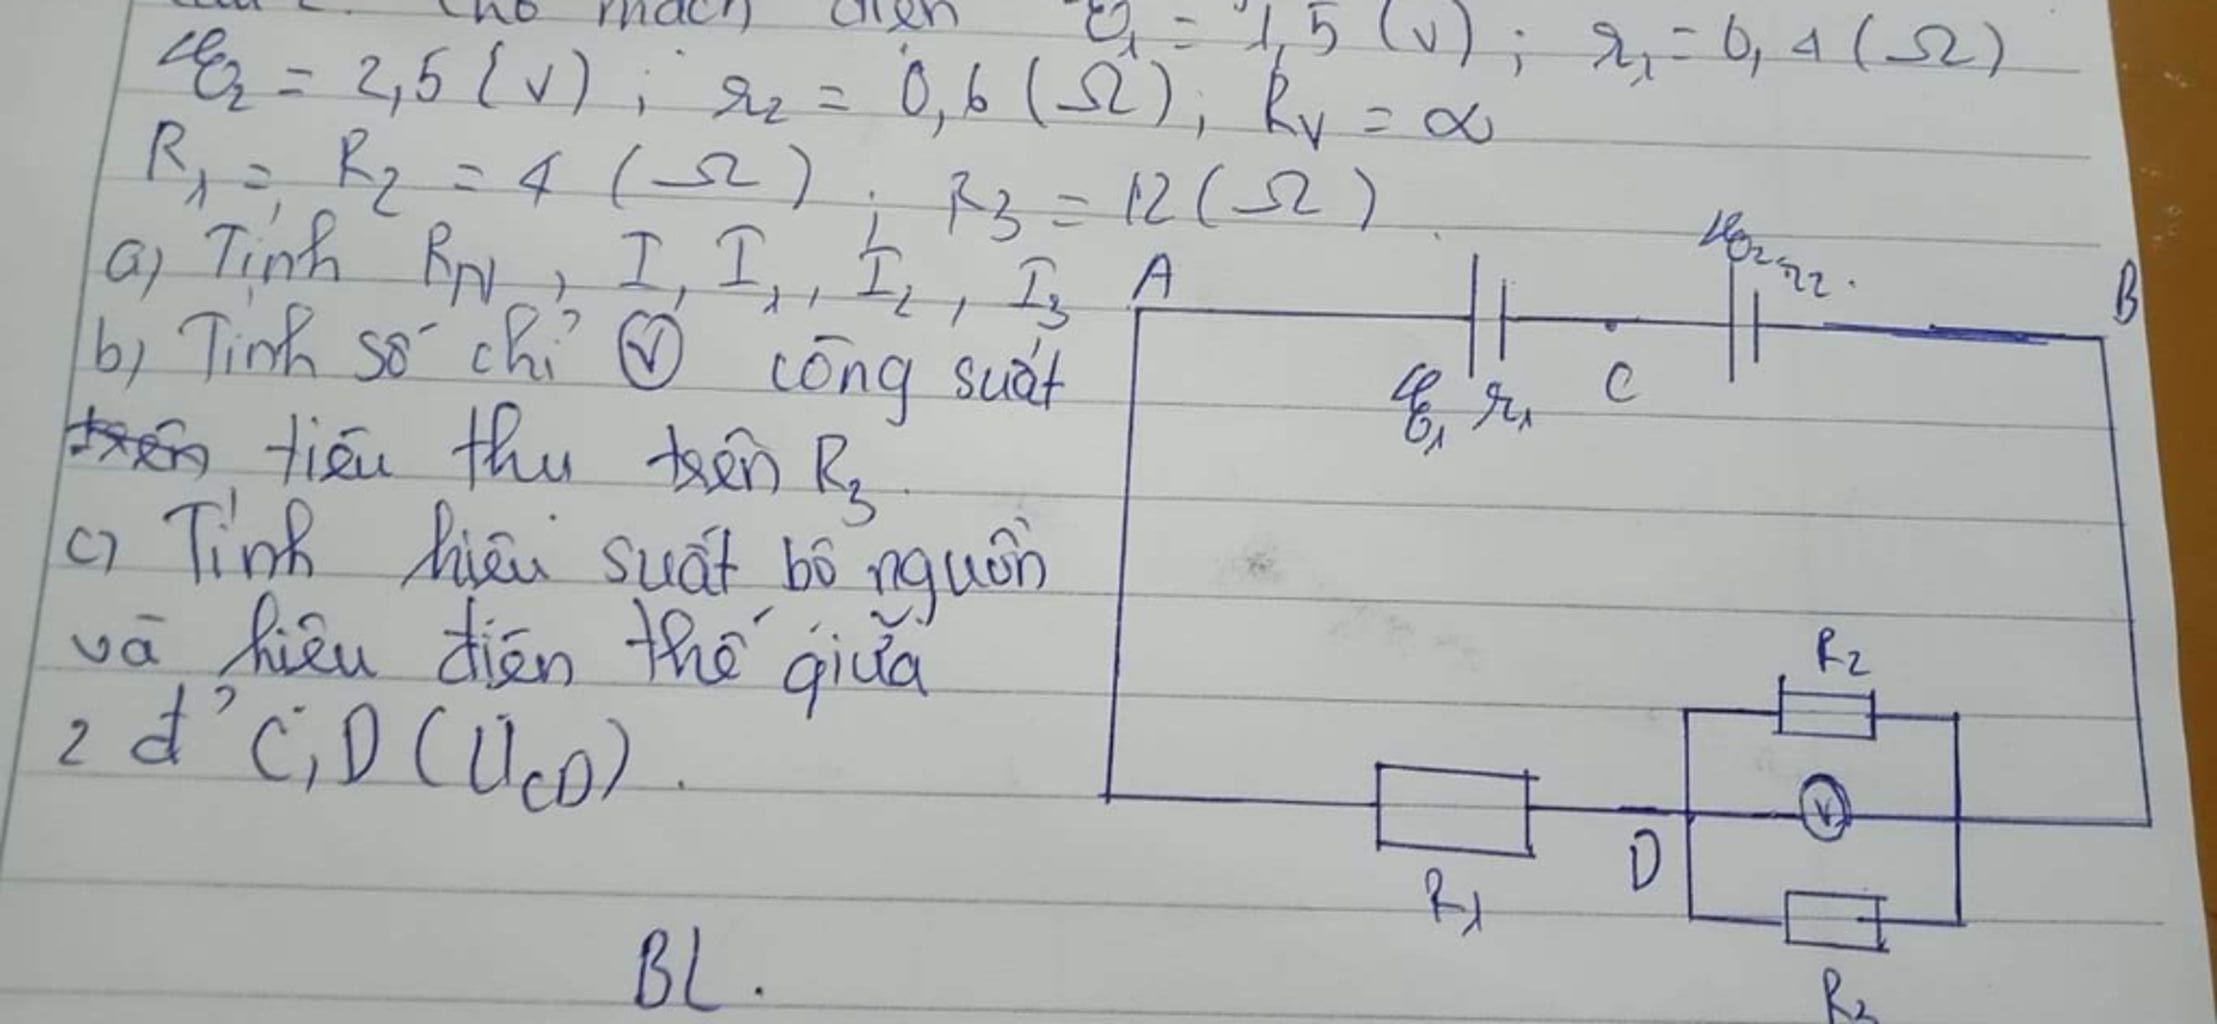 Cho mạch điện ℰ₁ = 1,5 (V) ; r₁ = 0,4 (Ω)
ℰ₂ = 2,5 (V) ; r₂ = 0,6 (Ω) ; Rᵥ = ∝
R₁ = R₂ = 4 (Ω) ; R₃ = 12 (Ω)
a) Tính R_N , I, I₁, I₂, I₃
b) Tính số chỉ Ⓥ công suất
tiêu thụ trên R₃
c) Tính hiệu suất bộ nguồn
và hiệu điện thế giữa
2 đ' C, D (U_CD).
BL.
A
ℰ₂ r₂
B
ℰ₁ r₁
C
R₂
V
D
R₁
R₃